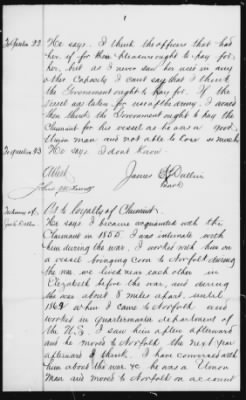 To Question 22 He says. I think the officers that had
her, if for their pleasure ought to pay for
her, but as I never saw her used in any
other Capacity I cant say that I think
the Government ought to pay for. If the
vessel was taken for use of the army, I would
then think the Government ought to pay the
Claimant for his vessel as he was a
Union man and not able to lose so much
To question 23 He says I dont know.
Attest James Dallin
mark
Testimony of As to loyalty of Claimant.
He says I became acquainted with the
Claimant in 1855. I was intimate with
him during the war. I worked with him on
a vessel bringing corn to Norfolk during
the war we lived near each other in
Elizabeth before the war, and during
the war about 8 miles apart, until
1862 when I came to Norfolk and
worked in quartermaster department of
the U.S. I saw him often afterward
and he moved to Norfolk the next year
afterward I think. I have conversed with
him about the war &c. he was a Union
Man and moved to Norfolk on account